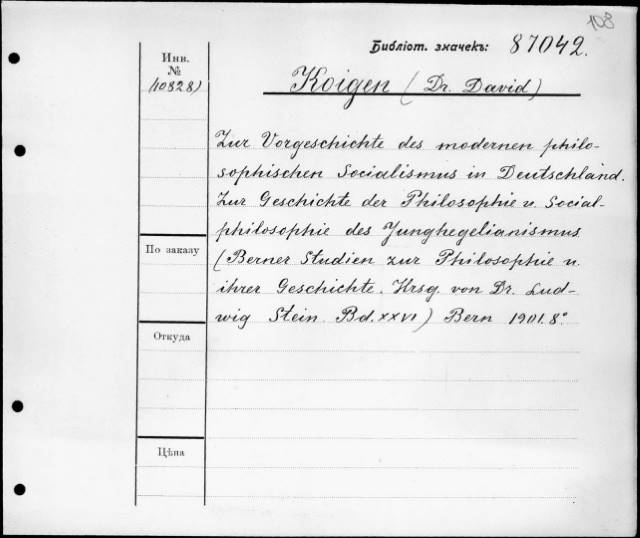 108
Библіот. значекъ: 87042.
Инв.
№
(10828)
Koigen (Dr. David)
Zur Vorgeschichte des modernen philo-
sophischen Socialismus in Deutschland.
Zur Geschichte der Philosophie u. Social-
philosophie des Junghegelianismus
(Berner Studien zur Philosophie u.
ihrer Geschichte. Hrsg. von Dr. Lud-
wig Stein. Bd. XXVI) Bern 1901. 8°
По заказу
Откуда
Цѣна